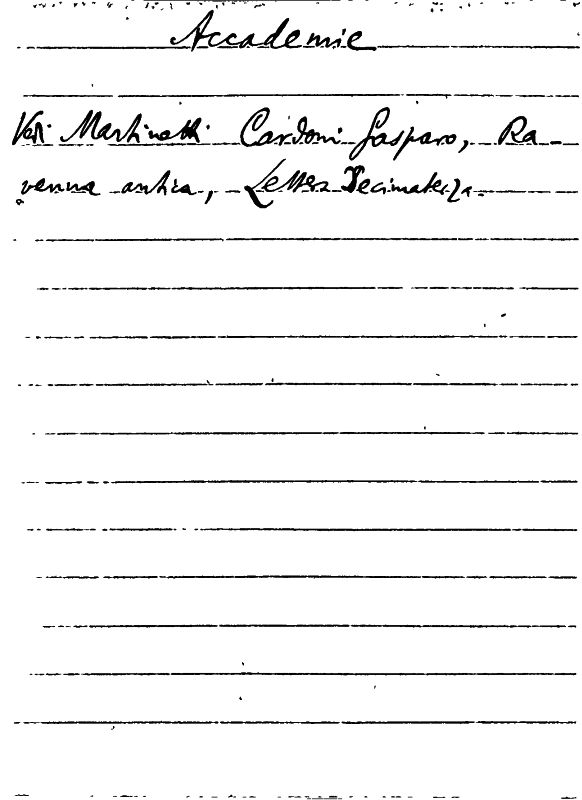 Accademie
Vedi Martinetti Cardoni Gasparo, Ra-
venna antica, Lettera Decimaterza.